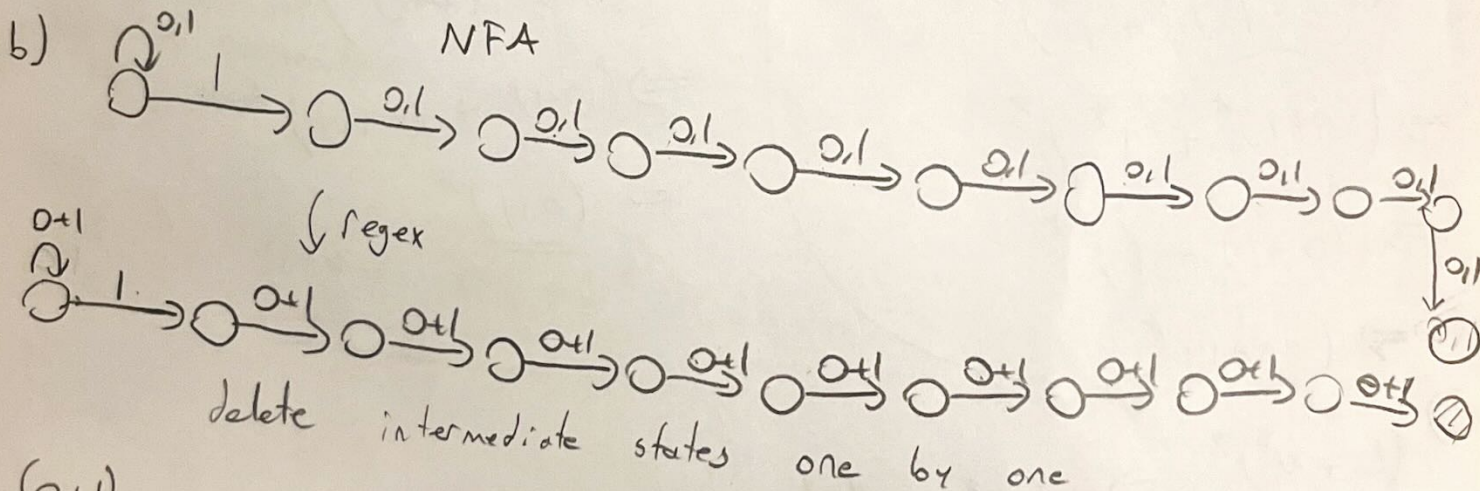 b) 0,1 NFA
1 0,1 0,1 0,1 0,1 0,1 0,1 0,1 0,1
regex
0,1
0+1
1 0+1 0+1 0+1 0+1 0+1 0+1 0+1 0+1 0+1
delete intermediate states one by one